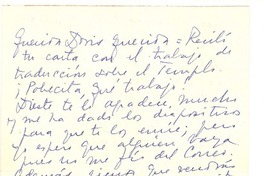 Querida Doris querida = Recibí
tu carta con el trabajo de
traducción sobre el Templo.
¡Pobecita, qué trabajo!
te lo agradece mucho
y me ha dado los diapositivos
para que te los envíe; pero
yo espero que alguien vaya
pues no me fío del Correo.
Además vienes que vendrás